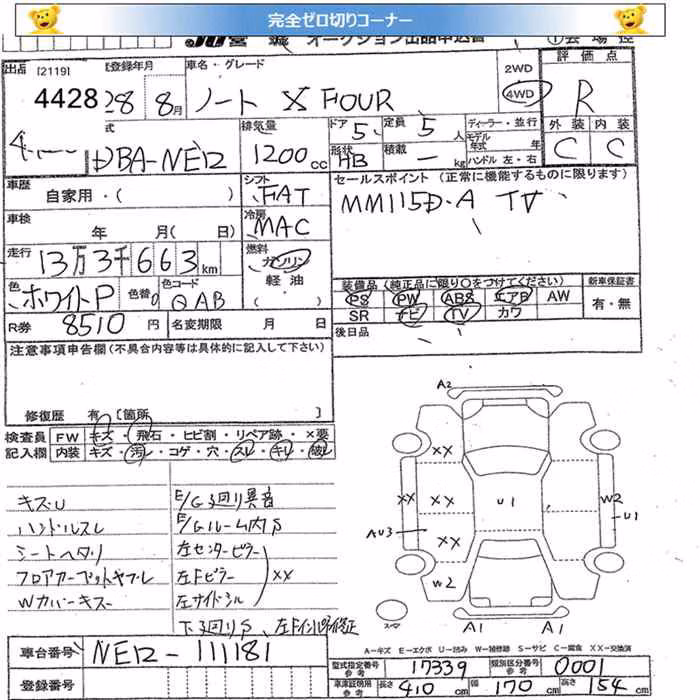 完全ゼロ切りコーナー
出品 [2119] 登録年月 車名・グレード 2WD 評価点
4428 28 8月 ノート X FOUR 4WD R
排気量 ドア 5 定員 5人 ディーラー・並行 外装 内装
DBA-NE12 1200cc 形状 HB 積載 ー kg モデル年式 年 ハンドル 左・右 C C
車歴 自家用・( ) シフト FAT セールスポイント (正常に機能するものに限ります)
車検 年 月( 日) 冷房 MAC MM115D-A TV
走行 13万3千663km 燃料 ガソリン 軽油 ( )
装備品 (純正品に限り○をつけてください) 新車保証書
色 ホワイトP 色替 0 色コード QAB PS PW ABS エアB AW 有・無
SR ナビ TV カワ
R券 8510円 名変期限 月 日 後日品
注意事項申告欄(不具合内容等は具体的に記入して下さい)
修復歴 有 [箇所 ]
検査員 FW キズ・飛石・ヒビ割・リペア跡・×要
記入欄 内装 キズ・汚レ・コゲ・穴・スレ・キレ・破レ
キズU E/G廻り異音
ハンドルスレ E/Gルーム内S
シートヘタリ 左センターピラー
フロアカーペットヤブレ 左Fピラー XX
Wカバーキズ 左サイドシル
下廻りS、左Fインナー修正
A2
XX
XX XX U1 W2
U1
AU3 XX
W2
スペア A1 A1
A-キズ E-エクボ U-凹み W-補修跡 S-サビ C-腐食 XX-交換済
車台番号 NE12-111181
型式指定番号 参考 17339 類別区分番号 参考 0001
登録番号
車庫証明用 参考 長さ 410 cm 幅 170 cm 高さ 154 cm